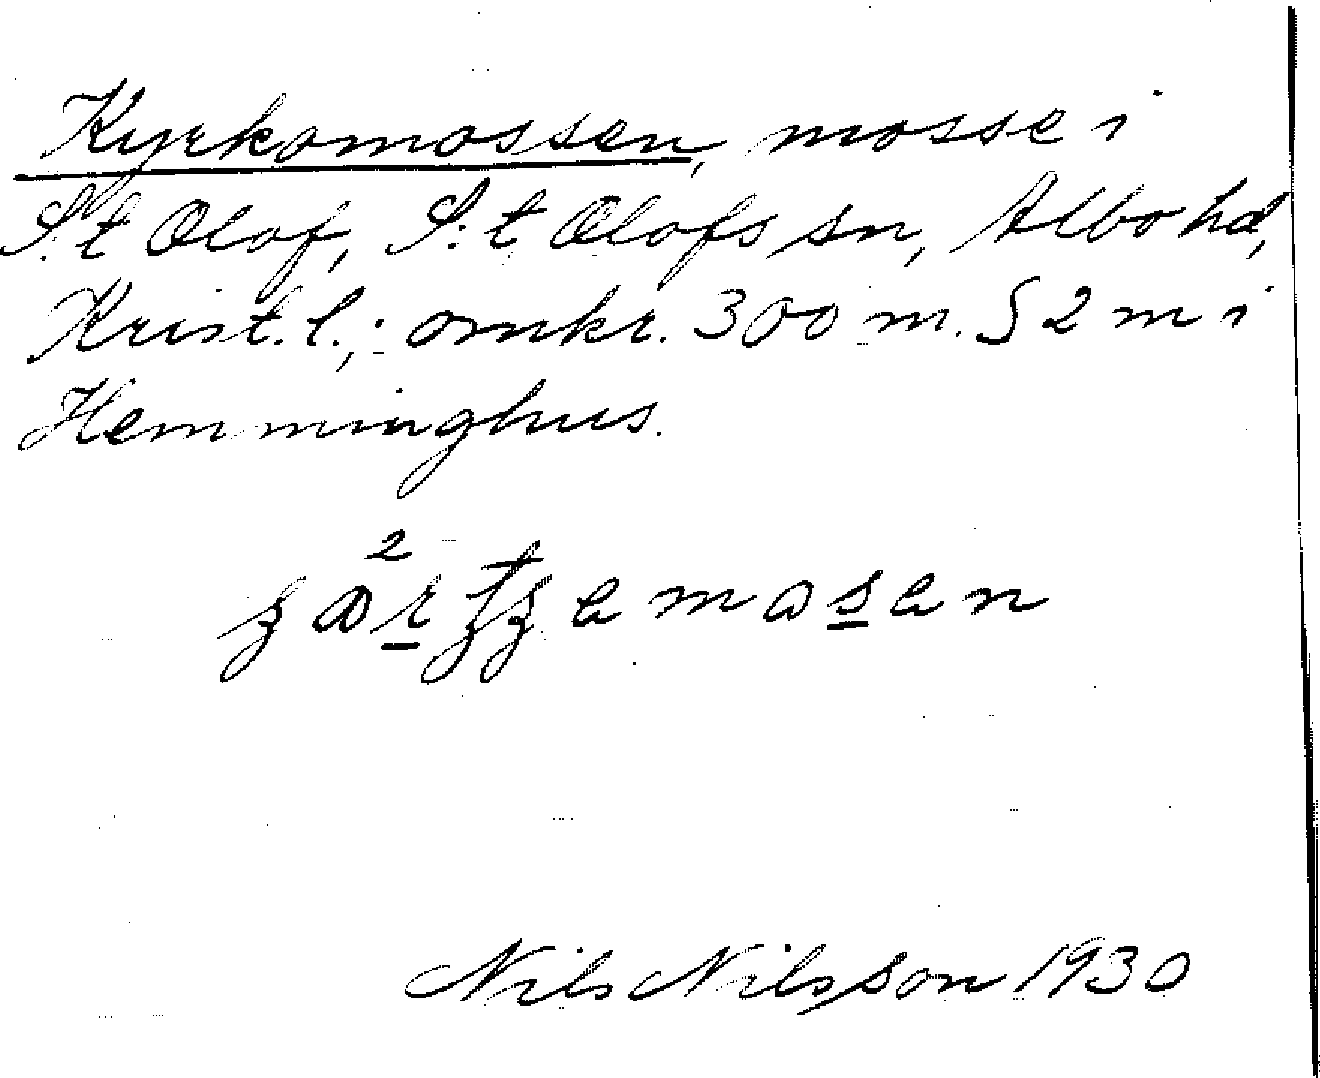 Kyrkomossen, mosse i
S:t Olof, S:t Olofs sn, Albo hd,
Krist. l.; omkr. 300 m. S 2 m i
Hemminghus.
Nils Nilsson 1930